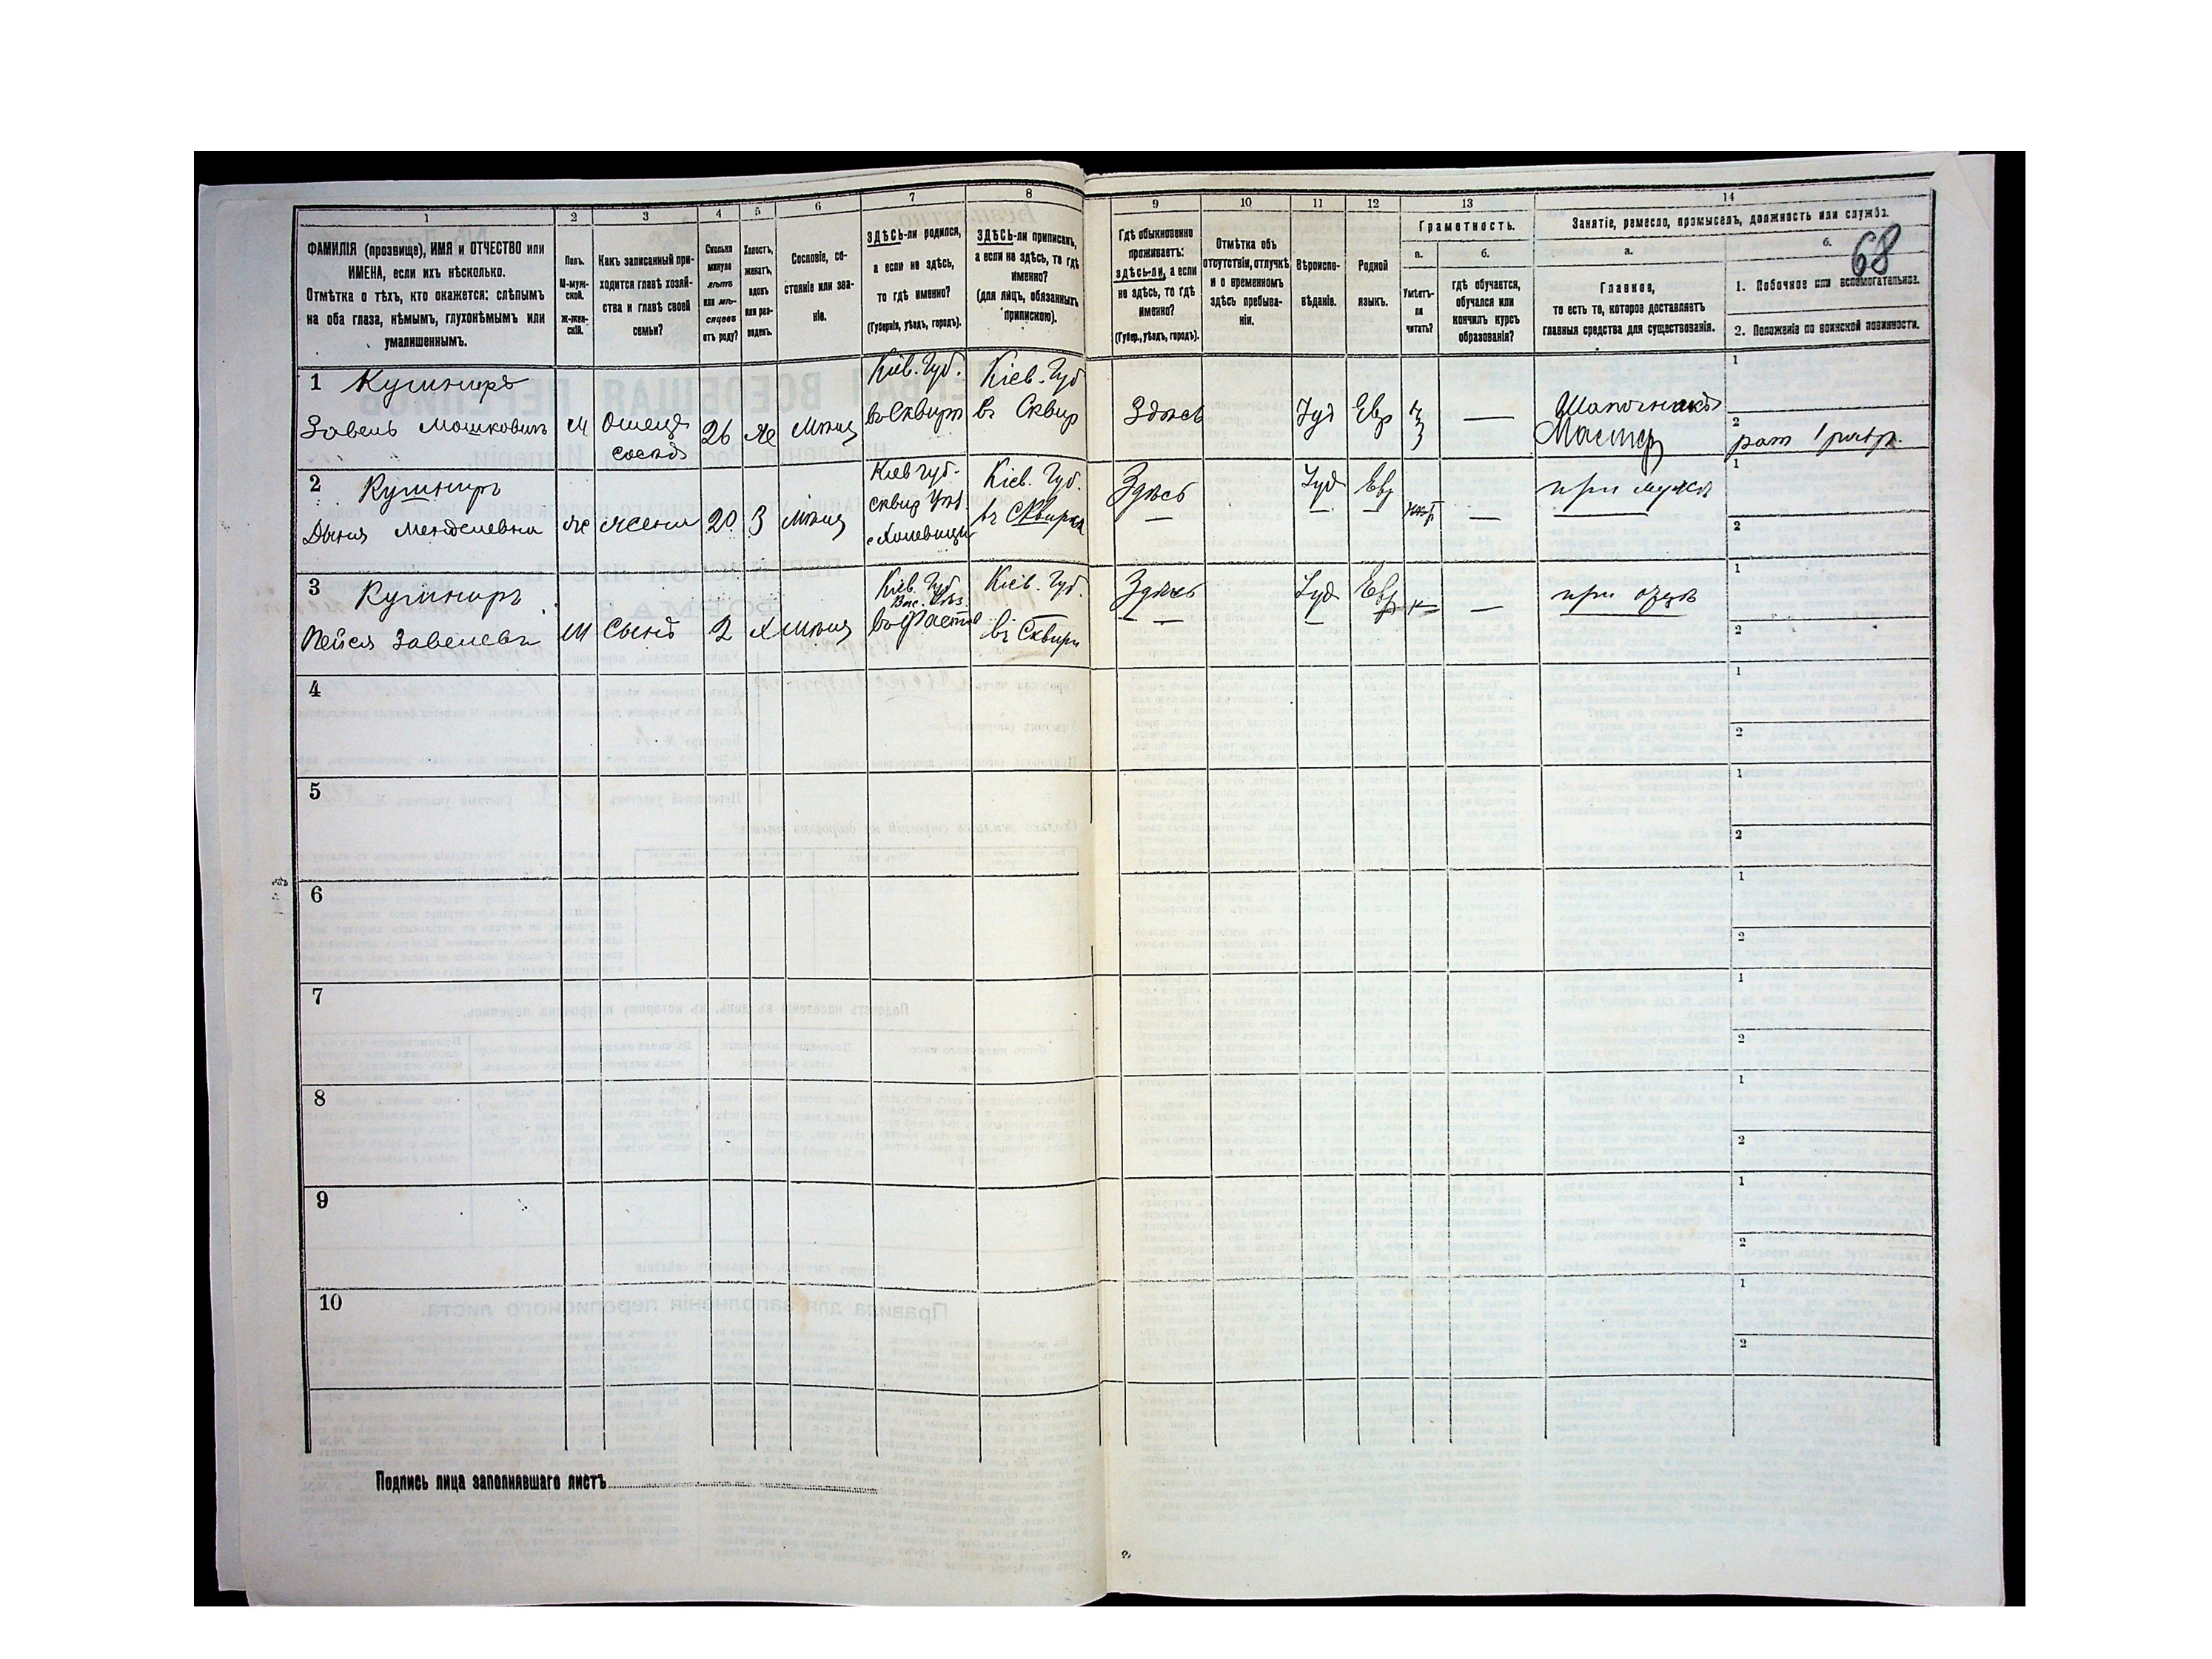 1
2
3
4
5
6
7
8
9
10
11
12
13
14
ФАМИЛІЯ (прозвище), ИМЯ и ОТЧЕСТВО или
ИМЕНА, если ихъ нѣсколько.
Отмѣтка о тѣхъ, кто окажется: слѣпымъ
на оба глаза, нѣмымъ, глухонѣмымъ или
умалишеннымъ.
Полъ.
М-муж-
ской.
Ж-жен-
скій.
Какъ записанный при-
ходится главѣ хозяй-
ства и главѣ своей
семьи?
Сколько
минуло
лѣтъ
или мѣ-
сяцевъ
отъ роду?
Холостъ,
женатъ,
вдовъ
или раз-
веденъ.
Сословіе, со-
стояніе или зва-
ніе.
ЗДѢСЬ-ли родился,
а если не здѣсь,
то гдѣ именно?
(Губернія, уѣздъ, городъ).
ЗДѢСЬ-ли приписанъ,
а если не здѣсь, то гдѣ
именно?
(для лицъ, обязанныхъ
припискою).
Гдѣ обыкновенно
проживаетъ:
здѣсь-ли, а если
не здѣсь, то гдѣ
именно?
(Губер., уѣздъ, городъ).
Отмѣтка объ
отсутствіи, отлучкѣ
и о временномъ
здѣсь пребыва-
ніи.
Вѣроиспо-
вѣданіе.
Родной
языкъ.
Грамотность.
а.
Умѣетъ-
ли
читать?
б.
гдѣ обучается,
обучался или
кончилъ курсъ
образованія?
Занятіе, ремесло, промыселъ, должность или служба.
а.
Главное,
то есть то, которое доставляетъ
главныя средства для существованія.
б.
68
1. Побочное или вспомогательное.
2. Положеніе по воинской повинности.
1 Кушниръ
Завель Мошковичъ
М
26
Же
Мѣщ
Кіев. Губ.
въ Сквирѣ
Кіев. Губ
въ Сквир
Здѣсь
Іуд
Евр
—
Мастер
1
2
2 Кушниръ
Менделевна
Же
жена
20
З
мѣщ
Кіев Губ.
Сквир Уѣз.
Кіев. Губ.
въ Сквирѣ
Здѣсь
—
Іуд
Евр
—
при мужѣ
1
2
3 Кушниръ
Пейся Завелевъ
М
Сынъ
2
Х
мѣщ
Кіев. Губ.
Вас. Уѣз.
въ Фастов
Кіев. Губ.
въ Сквирѣ
Здѣсь
— —
Іуд
Евр
—
при отцѣ
1
2
4
1
2
5
1
2
6
1
2
7
1
2
8
1
2
9
1
2
10
1
2
Подпись лица заполнявшаго листъ